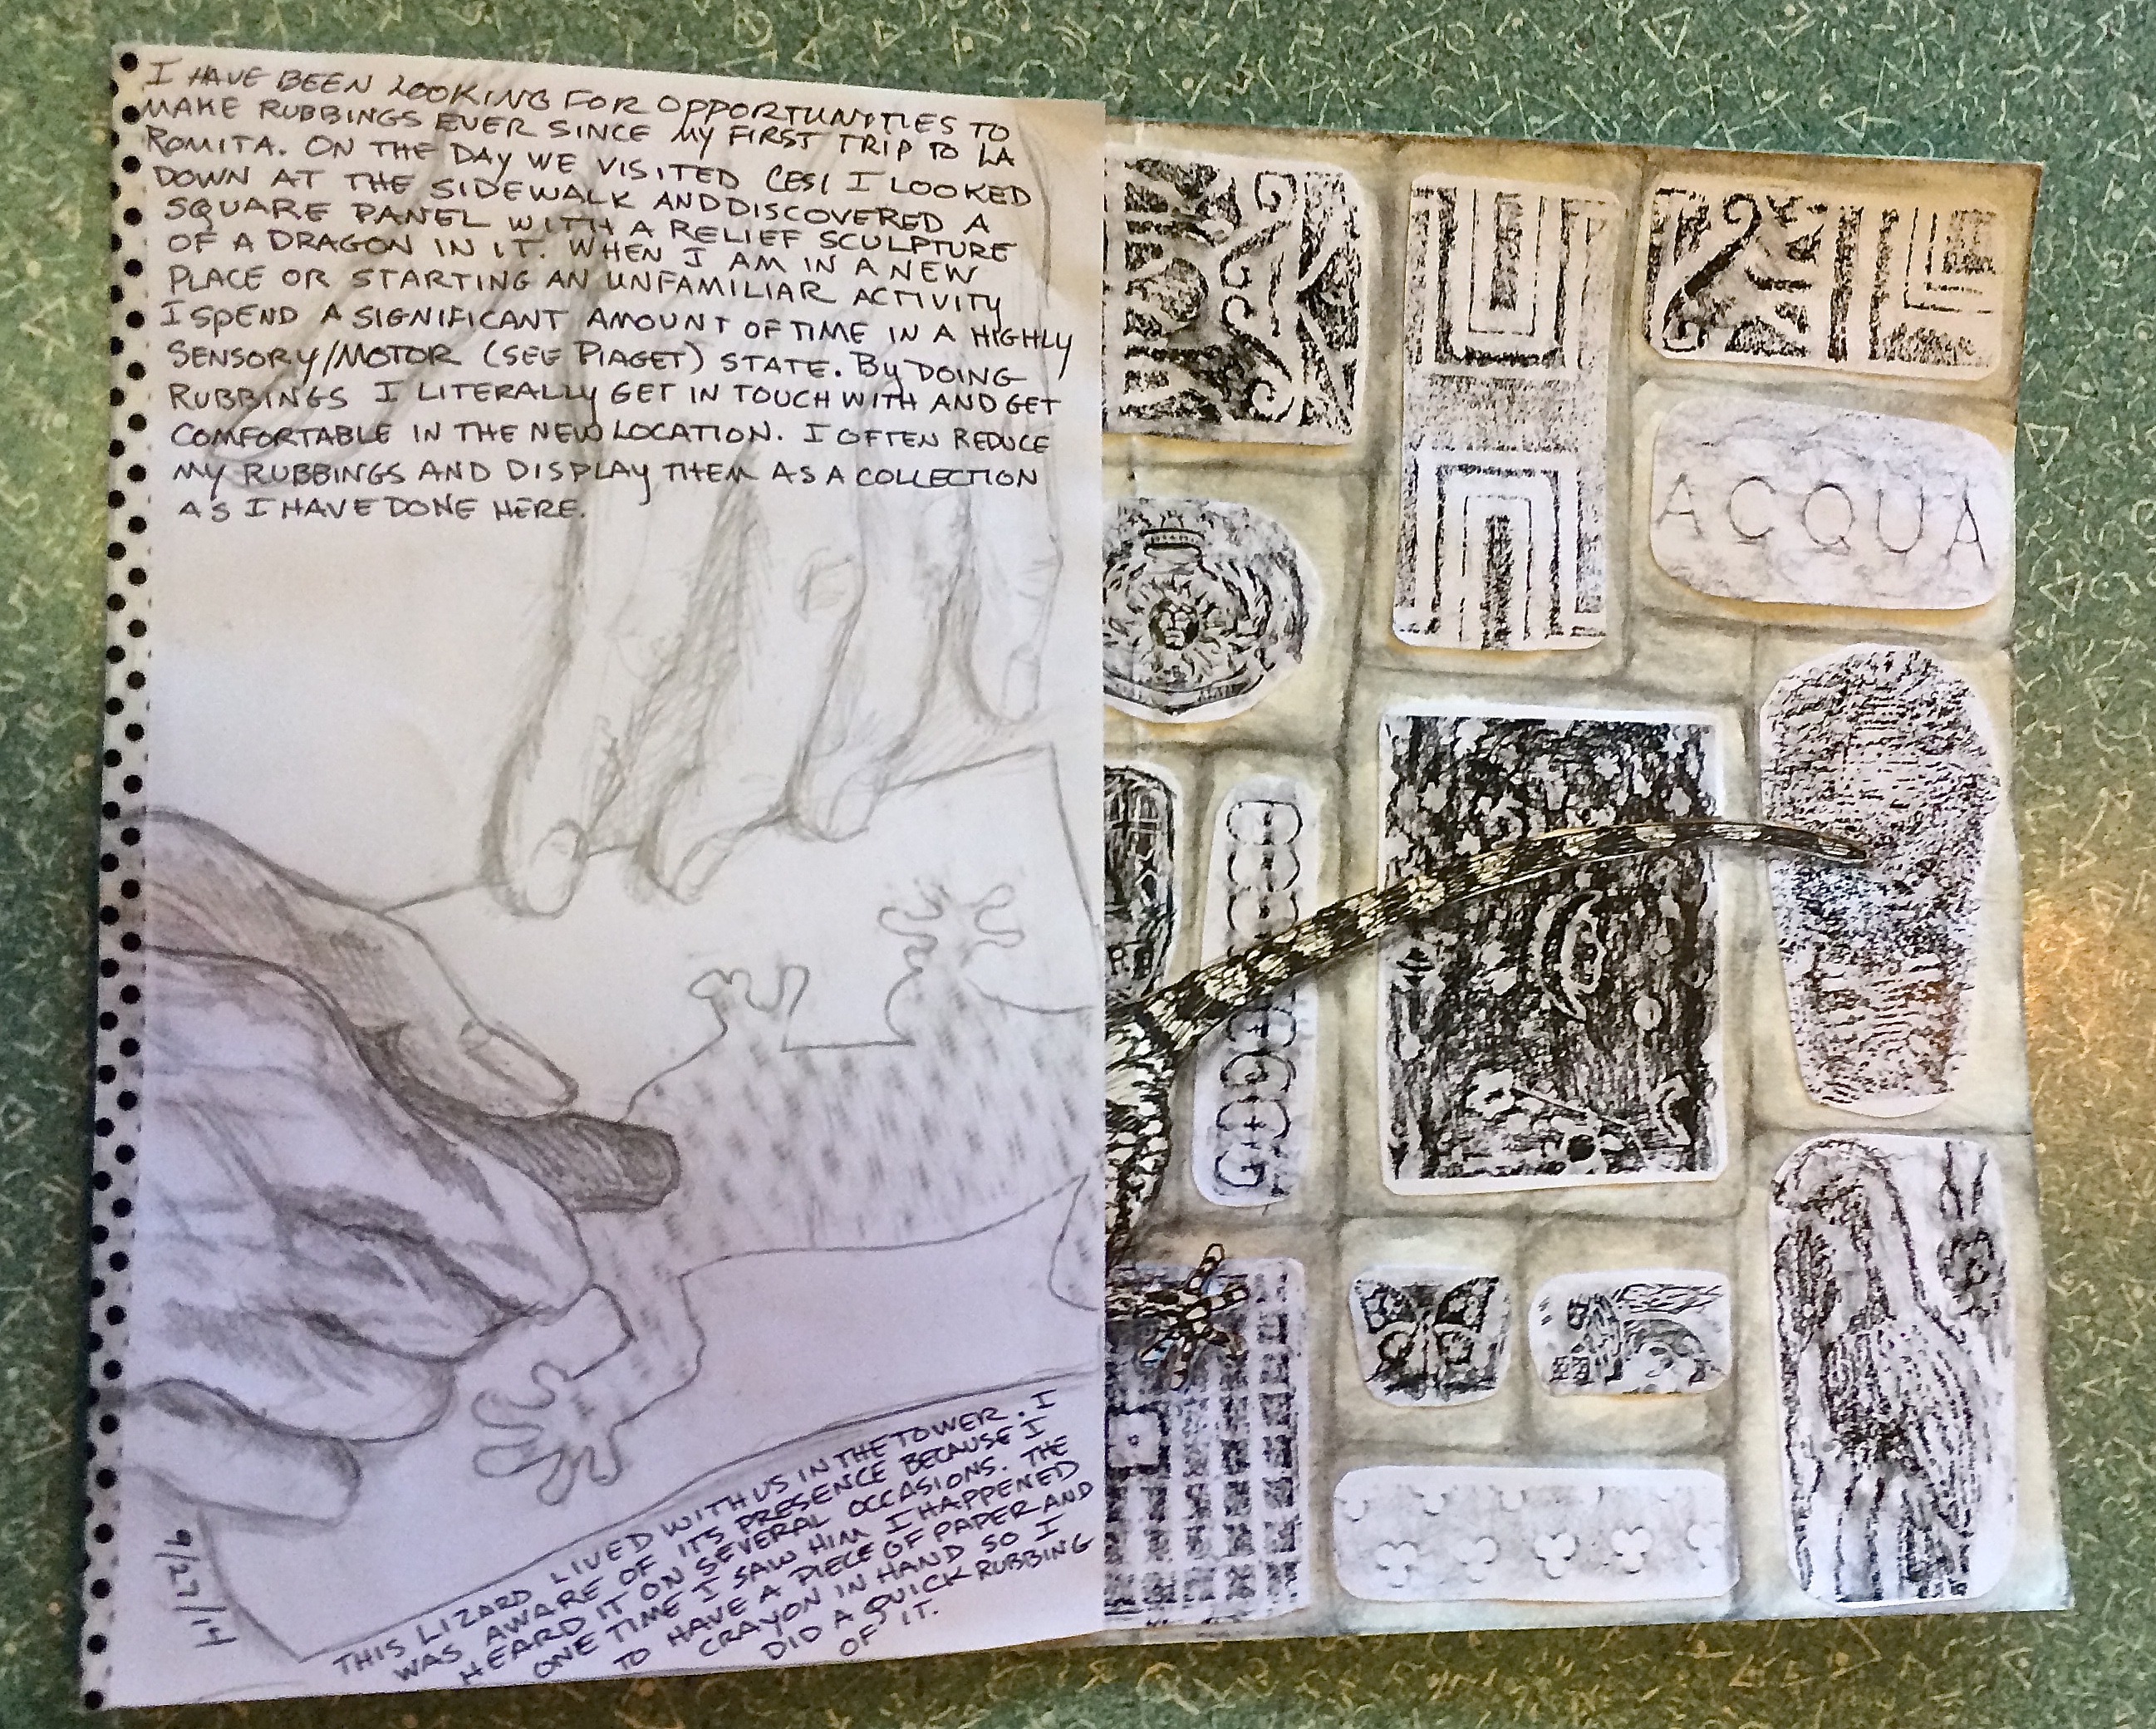 I HAVE BEEN LOOKING FOR OPPORTUNITIES TO
MAKE RUBBINGS EVER SINCE MY FIRST TRIP TO LA
ROMITA. ON THE DAY WE VISITED CESI I LOOKED
DOWN AT THE SIDEWALK AND DISCOVERED A
SQUARE PANEL WITH A RELIEF SCULPTURE
OF A DRAGON IN IT. WHEN I AM IN A NEW
PLACE OR STARTING AN UNFAMILIAR ACTIVITY
I SPEND A SIGNIFICANT AMOUNT OF TIME IN A HIGHLY
SENSORY/MOTOR (SEE PIAGET) STATE. BY DOING
RUBBINGS I LITERALLY GET IN TOUCH WITH AND GET
COMFORTABLE IN THE NEW LOCATION. I OFTEN REDUCE
MY RUBBINGS AND DISPLAY THEM AS A COLLECTION
AS I HAVE DONE HERE.
THIS LIZARD LIVED WITH US IN THE TOWER. I
WAS AWARE OF ITS PRESENCE BECAUSE I
HEARD IT ON SEVERAL OCCASIONS. THE
ONE TIME I SAW HIM I HAPPENED
TO HAVE A PIECE OF PAPER AND
CRAYON IN HAND SO I
DID A QUICK RUBBING
OF IT.
9/27/14
ACQUA